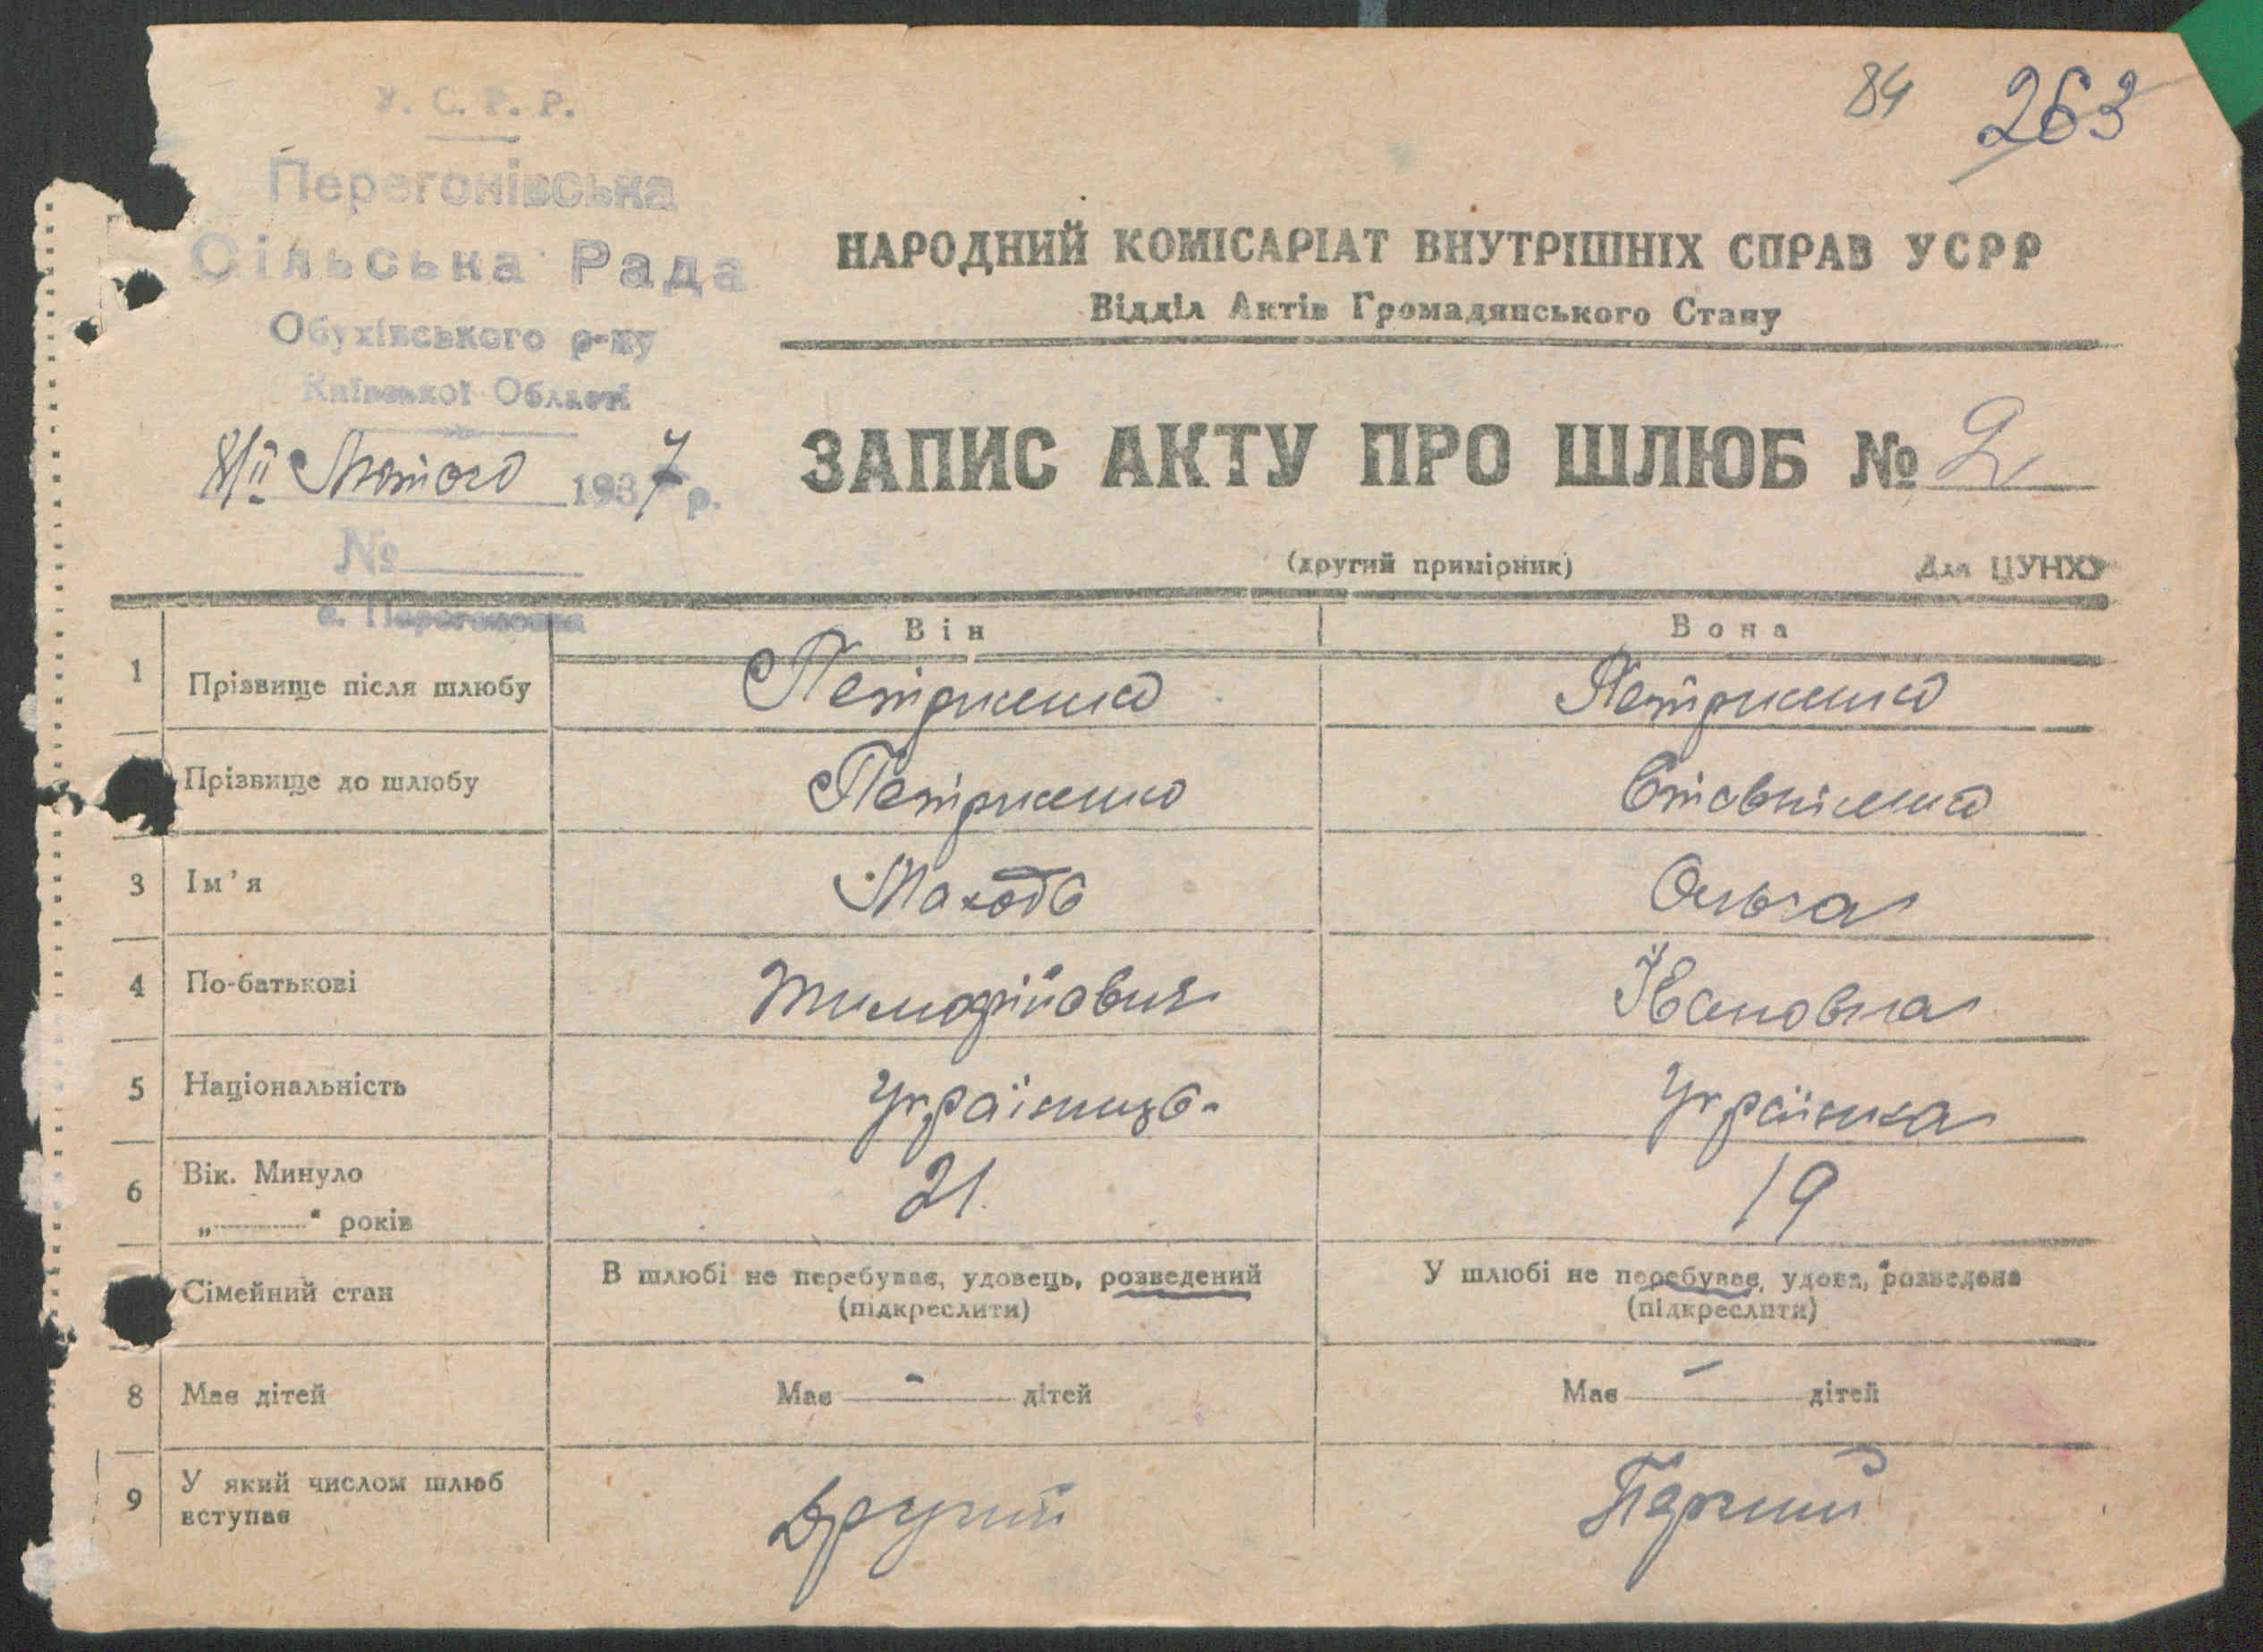 84 263
У. С. Р. Р.
Перегонівська
Сільська Рада
Обухівського р-ну
Київської Області
8/ІІ Лютого 1937 р.
№
с. Перегоновка
НАРОДНИЙ КОМІСАРІАТ ВНУТРІШНІХ СПРАВ УСРР
Відділ Актів Громадянського Стану
ЗАПИС АКТУ ПРО ШЛЮБ № 2
(другий примірник) Для ЦУНХУ
Він Вона
1 Прізвище після шлюбу Петриченко Петриченко
Прізвище до шлюбу Петриченко
3 Ім'я Ольга
4 По-батькові Тимофійович Івановна
5 Національність Українець Українка
6 Вік. Минуло 21. 19
„ “ років
Сімейний стан В шлюбі не перебуває, удовець, розведений У шлюбі не перебуває, удова, розведена
(підкреслити) (підкреслити)
8 Має дітей Має - дітей Має - дітей
9 У який числом шлюб
вступає Другий Перший